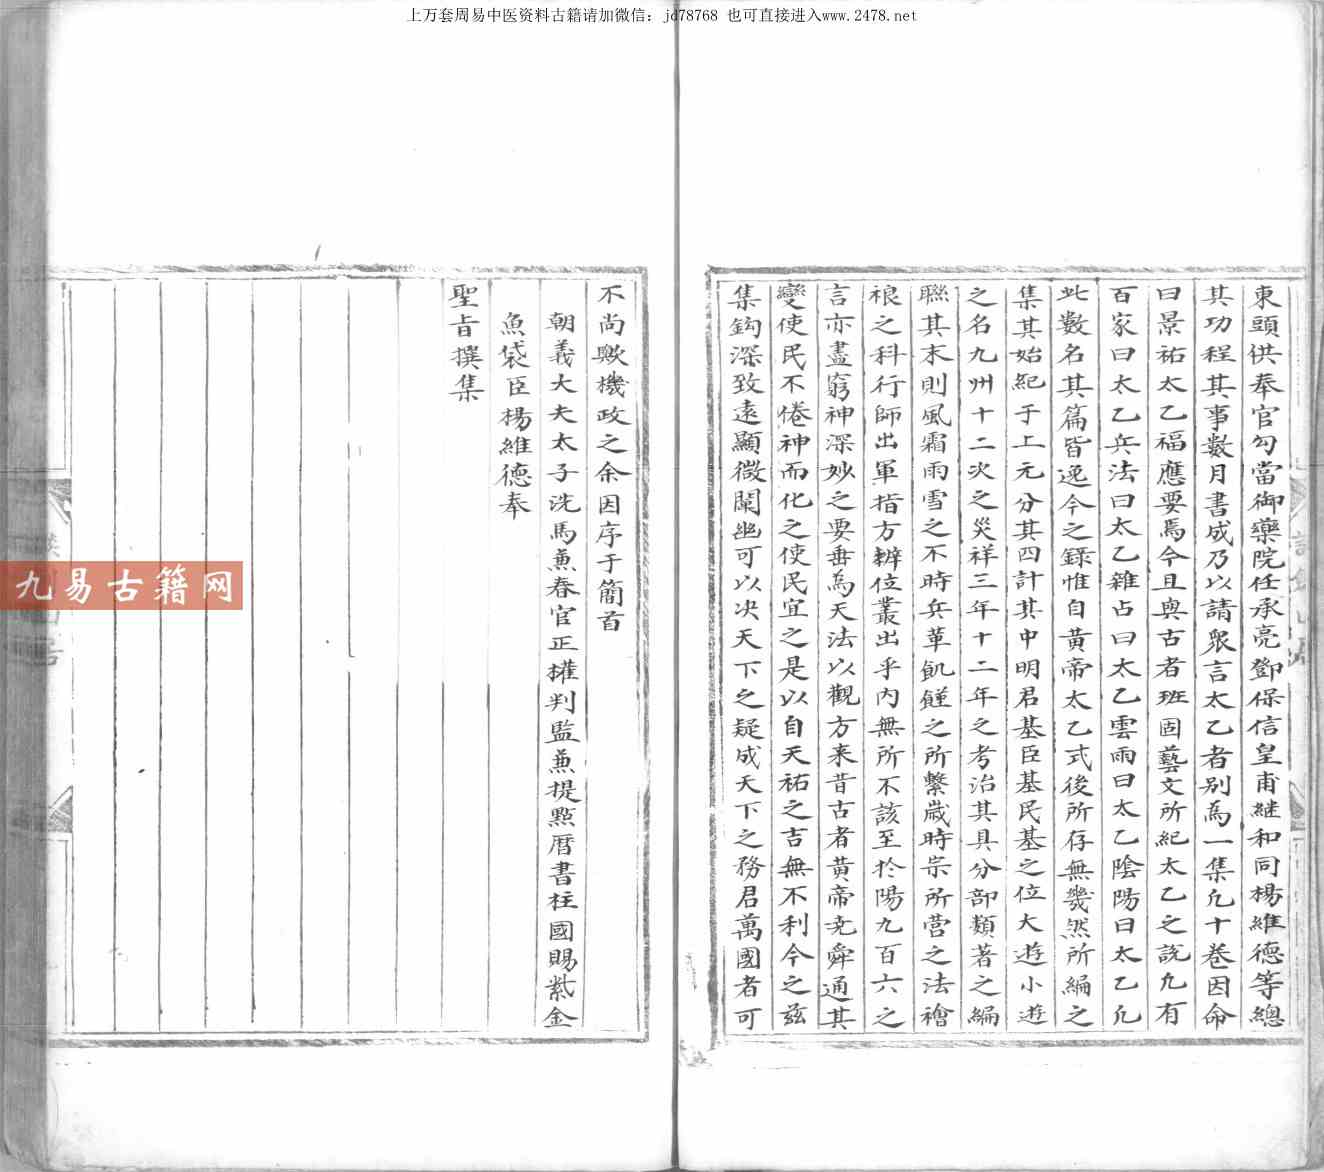 上万套周易中医资料古籍请加微信：jd78768 也可直接进入www.2478.net
東頭供奉官勾當御藥院任承亮鄧保信皇甫継和同楊維德等總
其功程其事數月書成乃以請衆言太乙者別為一集凢十卷因命
曰景祐太乙福應要焉今且與古者班固藝文所紀太乙之說凢有
百家曰太乙兵法曰太乙雜占曰太乙雲雨曰太乙陰陽曰太乙凢
此數名其篇皆逸今之錄惟自黄帝太乙式後所存無幾然所編之
集其始紀于上元分其四計其中明君基臣基民基之位大遊小遊
之名九州十二次之災祥三年十二年之考治其具分部類著之編
聯其末則風霜雨雪之不時兵革飢饉之所繋歲時崇所营之法禬
禳之科行師出軍指方辨位叢出乎内無所不該至扵陽九百六之
言亦盡窮神深妙之要垂為天法以觀方来昔古者黄帝尭舜通其
變使民不倦神而化之使民宜之是以自天祐之吉無不利今之兹
集鈎深致遠顯微闡幽可以决天下之疑成天下之務君萬國者可
不尚歟機政之余因序于簡首
朝義大夫太子洗馬兼春官正權判監兼提點曆書柱國賜紫金
魚袋臣楊維德奉
聖旨撰集
九易古籍网